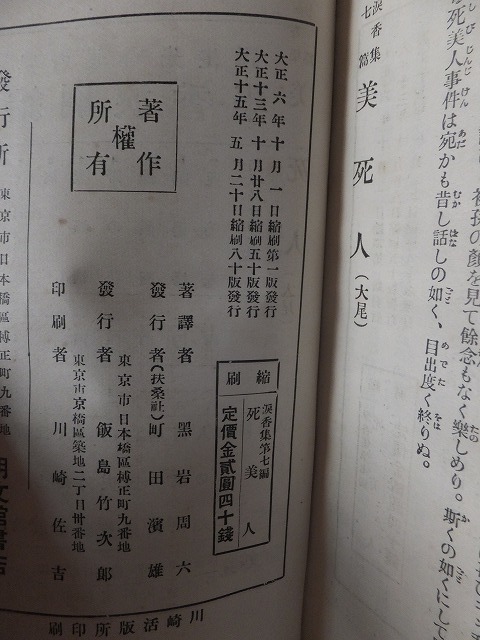 初孫の顔を見て餘念もなく樂しめり。斯くの如くにして
死美人事件は宛かも昔し話しの如く、目出度く終りぬ。
涙香集
七篇
美死人(大尾)
大正六年十月一日縮刷第一版發行
大正十三年十月廿八日縮刷五十版發行
大正十五年五月二十日縮刷八十版發行
著作
權
所有
縮刷
涙香集第七編
死美人
定價金貳圓四十錢
著譯者 黑岩周六
發行者(扶桑社)町田濱雄
東京市日本橋區榑正町九番地
發行者 飯島竹次郎
東京市京橋區築地二丁目卅番地
印刷者 川崎佐吉
川崎活版所印刷
發行所
東京市日本橋區榑正町九番地
明文館書店